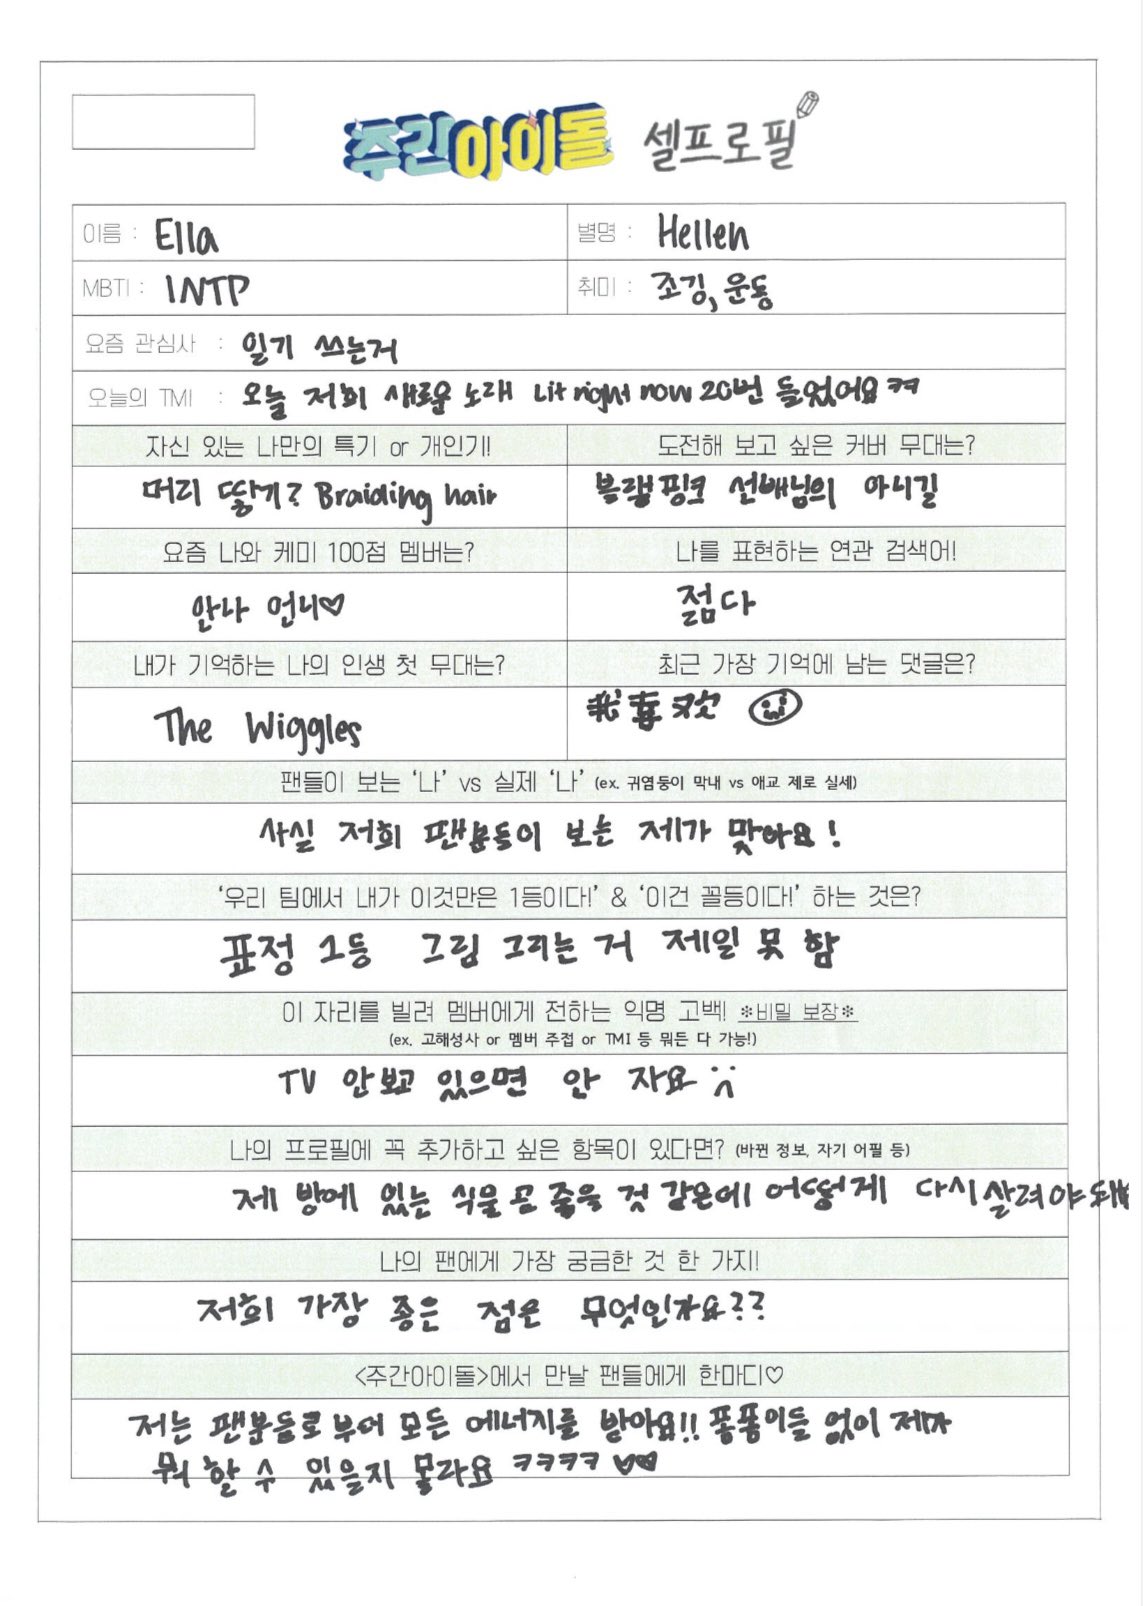 주간아이돌 셀프로필
이름 : Ella
별명 : Hellen
MBTI : INTP
취미 : 조깅, 운동
요즘 관심사 : 일기 쓰는거
오늘의 TMI : 오늘 저희 새로운 노래 Lit right now 20번 들었어요 ㅋㅋ
자신 있는 나만의 특기 or 개인기!
도전해 보고 싶은 커버 무대는?
머리 땋기? Braiding hair
블랙핑크 선배님의 마니길
요즘 나와 케미 100점 멤버는?
나를 표현하는 연관 검색어!
안나 언니♡
젊다
내가 기억하는 나의 인생 첫 무대는?
최근 가장 기억에 남는 댓글은?
The Wiggles
我喜欢
팬들이 보는 '나' vs 실제 '나' (ex. 귀염둥이 막내 vs 애교 제로 실세)
사실 저희 팬분들이 보는 제가 맞아요!
'우리 팀에서 내가 이것만은 1등이다!' & '이건 꼴등이다!' 하는 것은?
표정 1등 그림 그리는 거 제일 못 함
이 자리를 빌려 멤버에게 전하는 익명 고백! *비밀 보장*
(ex. 고해성사 or 멤버 주접 or TMI 등 뭐든 다 가능!)
TV 안보고 있으면 안 자요
나의 프로필에 꼭 추가하고 싶은 항목이 있다면? (바뀐 정보, 자기 어필 등)
제 방에 있는 식물 곧 죽을 것 같은데 어떻게 다시 살려야
나의 팬에게 가장 궁금한 것 한 가지!
저희 가장 좋은 점은 무엇인가요??
<주간아이돌>에서 만날 팬들에게 한마디♡
저는 팬분들로부터 모든 에너지를 받아요!! 퐁퐁이들 없이 제가
뭐 할 수 있을지 몰라요 ㅋㅋㅋㅋ ♡♡